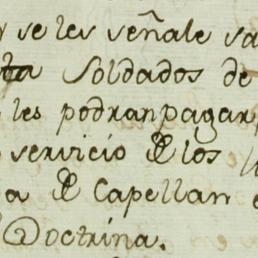 se les señale
Soldados de
les podran pagar,
servicio de los
a de Capellan
Doctrina.